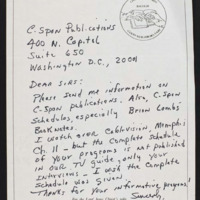 C-Span Publications
400 N. Capitol
Suite 650
Washington D.C., 20001
Dear Sirs:
Please send me information on
C-Span publications. Also, C-Span
Schedules, especially Brian Lambs'
Booknotes.
I watch area Cablevision, Memphis
Ch. 11 - but the complete schedule
of your programs is not published
in our TV guide, only your
interviews - I wish the complete
Schedule was given -
Thanks for your informative programs!
Sincerely,